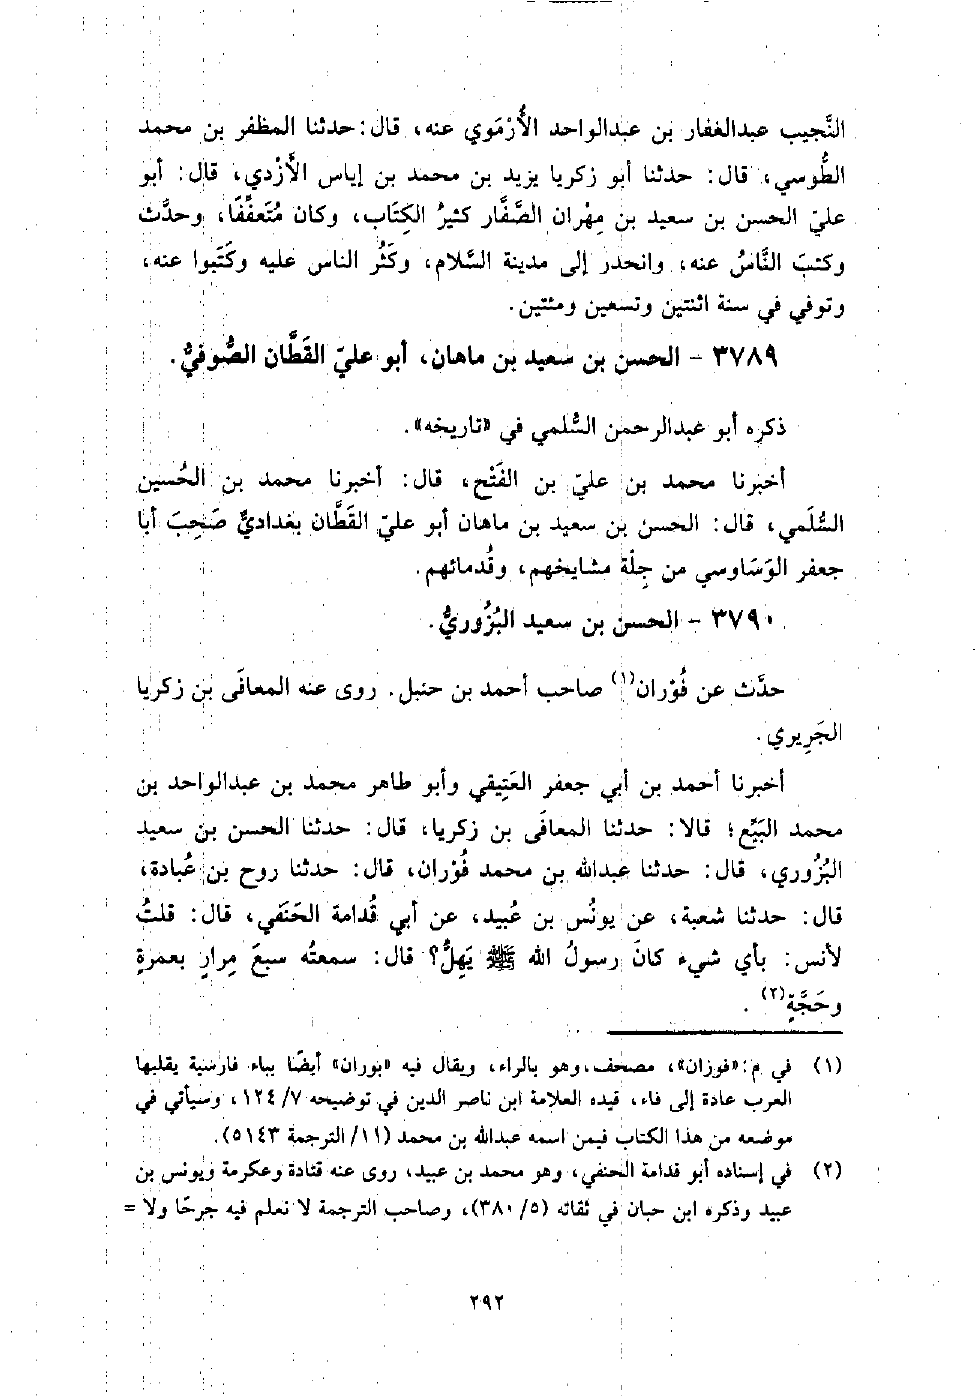 النَّجيب عبدالغفار بن عبدالواحد الأُرْمَوي عنه، قال: حدثنا المظفر بن محمد
الطُّوسي، قال: حدثنا أبو زكريا يزيد بن محمد بن إياس الأَزْدي، قال: أبو
عليّ الحسن بن سعيد بن مِهْران الصَّفَّار كثيرُ الكِتاب، وكان مُتَعفِّفًا، وحدَّث
وكتبَ النَّاسُ عنه، وانحدر إلى مدينة السَّلام، وكَثُر الناس عليه وكَتَبوا عنه،
وتوفي في سنة اثنتين وتسعين ومئتين.
٣٧٨٩ - الحسن بن سعيد بن ماهان، أبو عليّ القَطَّان الصُّوفيُّ.
ذكره أبو عبدالرحمن السُّلمي في «تاريخه».
أخبرنا محمد بن عليّ بن الفَتْح، قال: أخبرنا محمد بن الحُسين
السُّلَمي، قال: الحسن بن سعيد بن ماهان أبو عليّ القَطَّان بغداديٌّ صَحِبَ أبا
جعفر الوَسَاوسي من جِلّة مشايخهم، وقُدمائهم.
٣٧٩٠ - الحسن بن سعيد البُزُوريُّ.
حدَّث عن فُوْران(١) صاحب أحمد بن حنبل. روى عنه المعافَى بن زكريا
الجَرِيري.
أخبرنا أحمد بن أبي جعفر العَتِيقي وأبو طاهر محمد بن عبدالواحد بن
محمد البَيِّع؛ قالا: حدثنا المعافَى بن زكريا، قال: حدثنا الحسن بن سعيد
البُزُوري، قال: حدثنا عبدالله بن محمد فُوْران، قال: حدثنا روح بن عُبادة،
قال: حدثنا شعبة، عن يونُس بن عُبيد، عن أبي قُدامة الحَنَفي، قال: قلتُ
لأنس: بأي شيء كانَ رسولُ الله ﷺ يَهِلُّ؟ قال: سمعته سبعَ مِرارٍ بعمرةٍ
وحَجَّةٍ(٢).
(١) في م: «فوزان»، مصحف، وهو بالراء، ويقال فيه «بوران» أيضًا بباء فارسية يقلبها
العرب عادة إلى فاء، قيده العلامة ابن ناصر الدين في توضيحه ٧/ ١٢٤، وسيأتي في
موضعه من هذا الكتاب فيمن اسمه عبدالله بن محمد (١١/ الترجمة ٥١٤٣).
(٢) في إسناده أبو قدامة الحنفي، وهو محمد بن عبيد، روى عنه قتادة وعكرمة ويونس بن
عبيد وذكره ابن حبان في ثقاته (٥/ ٣٨٠)، وصاحب الترجمة لا نعلم فيه جرحًا ولا =
٢٩٢